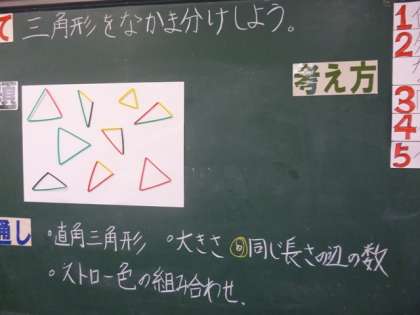 て 三角形をなかま分けしよう。
考え方
1
2
3
4
5
通し
・直角三角形 ・大きさ ㊐同じ長さの辺の数
・ストロー色の組み合わせ.